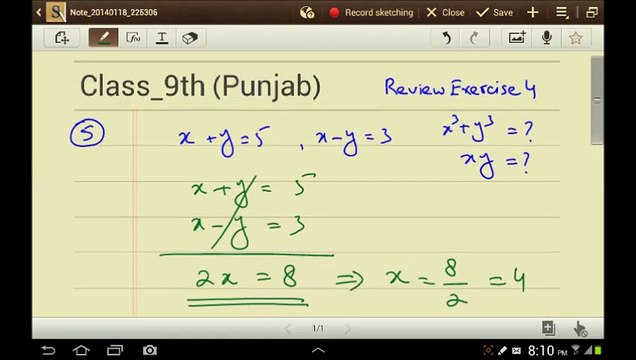 Note_20140118_225306 Record sketching Close Save
Class_9th (Punjab) Review Exercise 4
5 x + y = 5 , x - y = 3 x³ + y³ = ?
xy = ?
x + y = 5
x - y = 3
2x = 8 ⇒ x = 8/2 = 4
1/1
8:10 PM